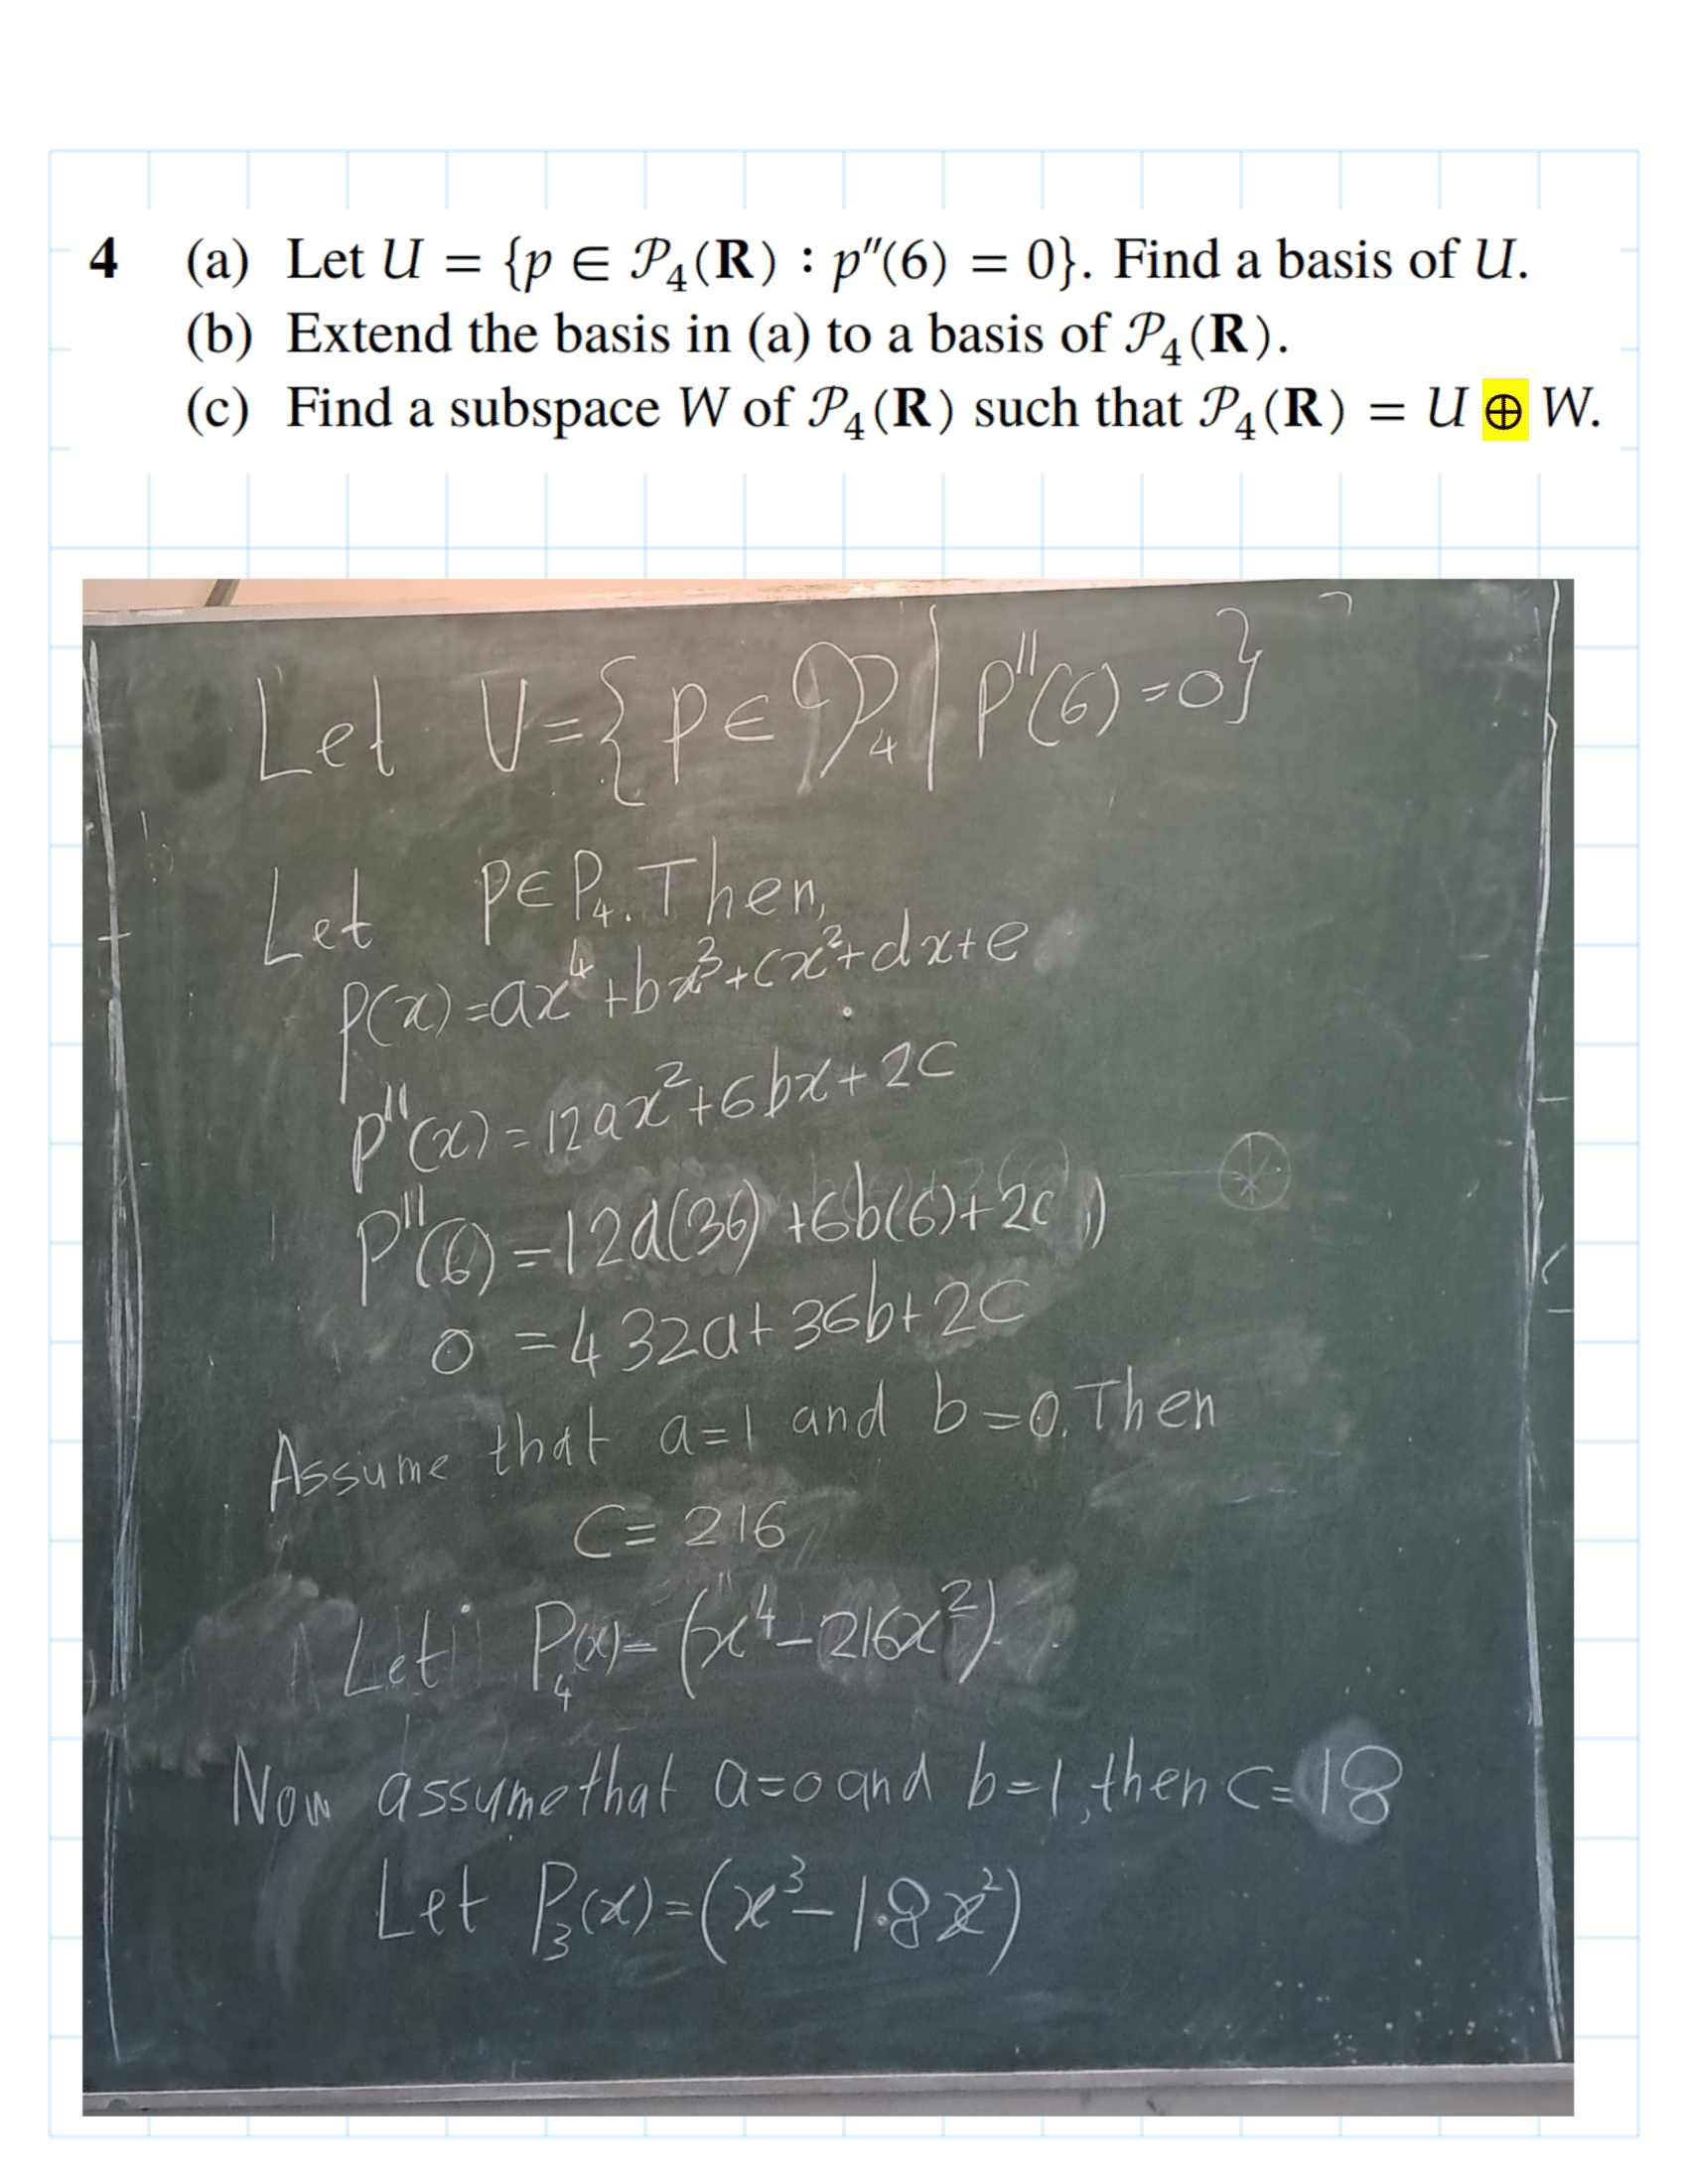 4 (a) Let U = {p ∈ 𝒫₄(R) : p″(6) = 0}. Find a basis of U.
(b) Extend the basis in (a) to a basis of 𝒫₄(R).
(c) Find a subspace W of 𝒫₄(R) such that 𝒫₄(R) = U ⊕ W.
Let U = {p ∈ 𝒫₄ | p″(6) = 0}
Let p ∈ P₄. Then,
p(x) = ax⁴ + bx³ + cx² + dx + e
p″(x) = 12ax² + 6bx + 2c
p″(6) = 12a(36) + 6b(6) + 2c
0 = 432a + 36b + 2c
Assume that a=1 and b=0. Then
C = 216
Let P₄(x) = (x⁴ - 216x²)
Now assume that a=0 and b=1, then c=18
Let P₃(x) = (x³ - 18x²)